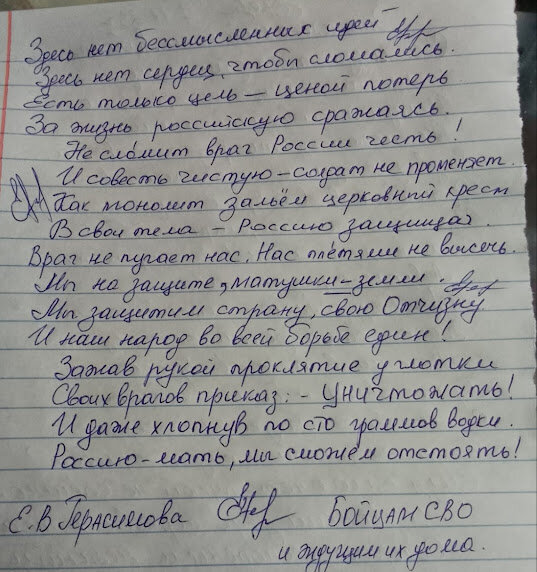 Здесь нет бессмысленных идей
Здесь нет сердец, чтобы сломались.
Есть только цель – ценой потерь
За жизнь российскую сражаясь.
Не сло́мит враг России честь!
И совесть чистую – солдат не променяет.
Как монолит зальём церковный крест
В свои тела – Россию защищая.
Враг не пугает нас. Нас пле́тями не высечь.
Мы на защите, матушки – земли.
Мы защитим страну, свою Отчизну
И наш народ во всей борьбе един!
Зажав рукой проклятие у глотки
Своих врагов приказ: - Уничтожать!
И даже хлопнув по сто граммов водки.
Россию-мать, мы сможем отстоять!
Е.В Герасимова БОЙЦАМ СВО
и ждущим их дома.